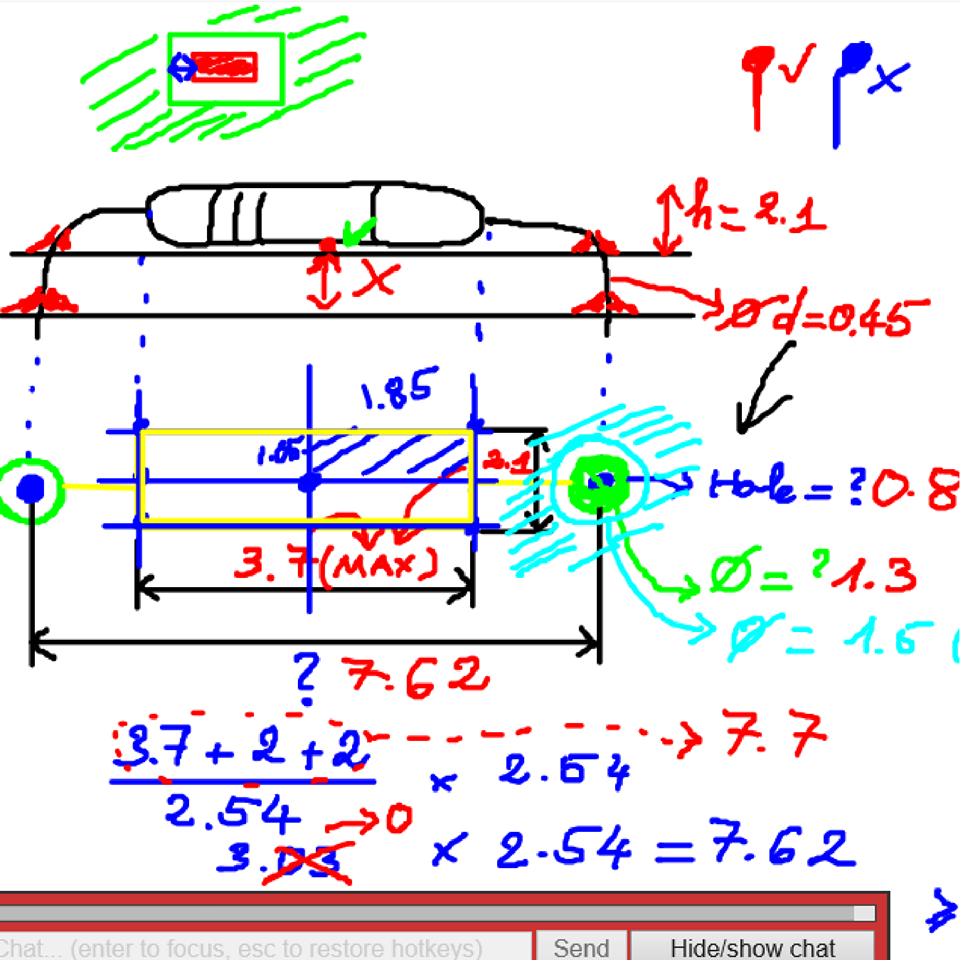 ✓ X
h=2.1
X
Ød=0.45
1.85
1.05
2.1
Hole=?0.8
3.7(MAX)
Ø=?1.3
Ø=1.6(
? 7.62
3.7+2+2 7.7
2.54 × 2.54
→0
3.03 × 2.54=7.62
Chat... (enter to focus, esc to restore hotkeys) Send Hide/show chat